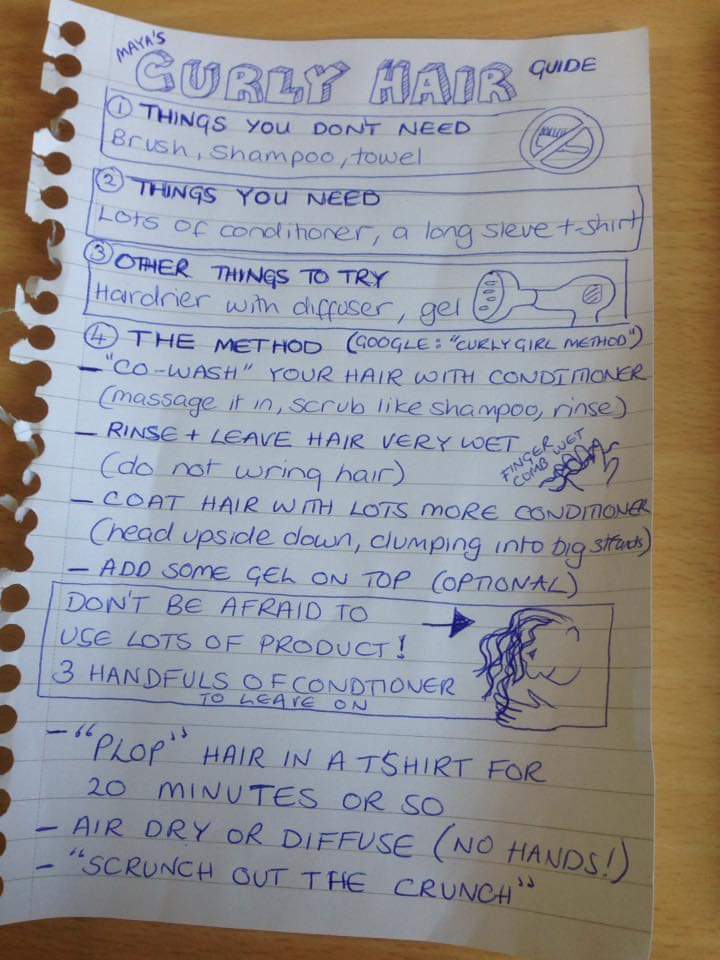 MAYA'S
CURLY HAIR GUIDE
① THINGS YOU DON'T NEED
Brush, Shampoo, towel
② THINGS YOU NEED
Lots of conditioner, a long sleve t-shirt
③ OTHER THINGS TO TRY
Hairdrier with diffuser, gel
④ THE METHOD (GOOGLE: "CURLY GIRL METHOD")
- "CO-WASH" YOUR HAIR WITH CONDITIONER
(massage it in, scrub like shampoo, rinse)
- RINSE + LEAVE HAIR VERY WET
(do not wring hair)
FINGER WET
COMB
- COAT HAIR WITH LOTS MORE CONDITIONER
(head upside down, clumping into big strands)
- ADD SOME GEL ON TOP (OPTIONAL)
DON'T BE AFRAID TO
USE LOTS OF PRODUCT!
3 HANDFULS OF CONDTIONER
TO LEAVE ON
- "PLOP" HAIR IN A TSHIRT FOR
20 MINUTES OR SO
- AIR DRY OR DIFFUSE (NO HANDS!)
- "SCRUNCH OUT THE CRUNCH"